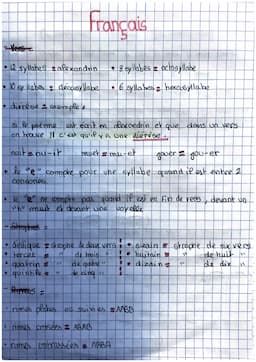 Français
- Vers
• 12 syllabes = alexandrin • 8 syllabes = octosyllabe
• 10 syllabes = décasyllabe • 6 syllabes = hexasyllabe
• diérèse = exemple :
si le poème est écrit en alexandrin et que dans un vers
on trouve 11 c'est qu'il y a une diérèse.
nuit = nu-it muet = mu-et jouer = jou-er
• le "e" compte pour une syllabe quand il est entre 2
consonnes.
• le "e" ne compte pas quand il est en fin de vers, devant un
"h" muet et devant une voyelle
- Strophes =
• distique = strophe de deux vers • sizain = strophe de six vers
• tercet = " de trois " • huitain = " de huit "
• quatrain = " de quatre " • dizain = " de dix "
• quintile = " de cinq "
- Rimes =
• rimes plates ou suivies = AABB
• rimes croisées = ABAB
• rimes embrassées = ABBA